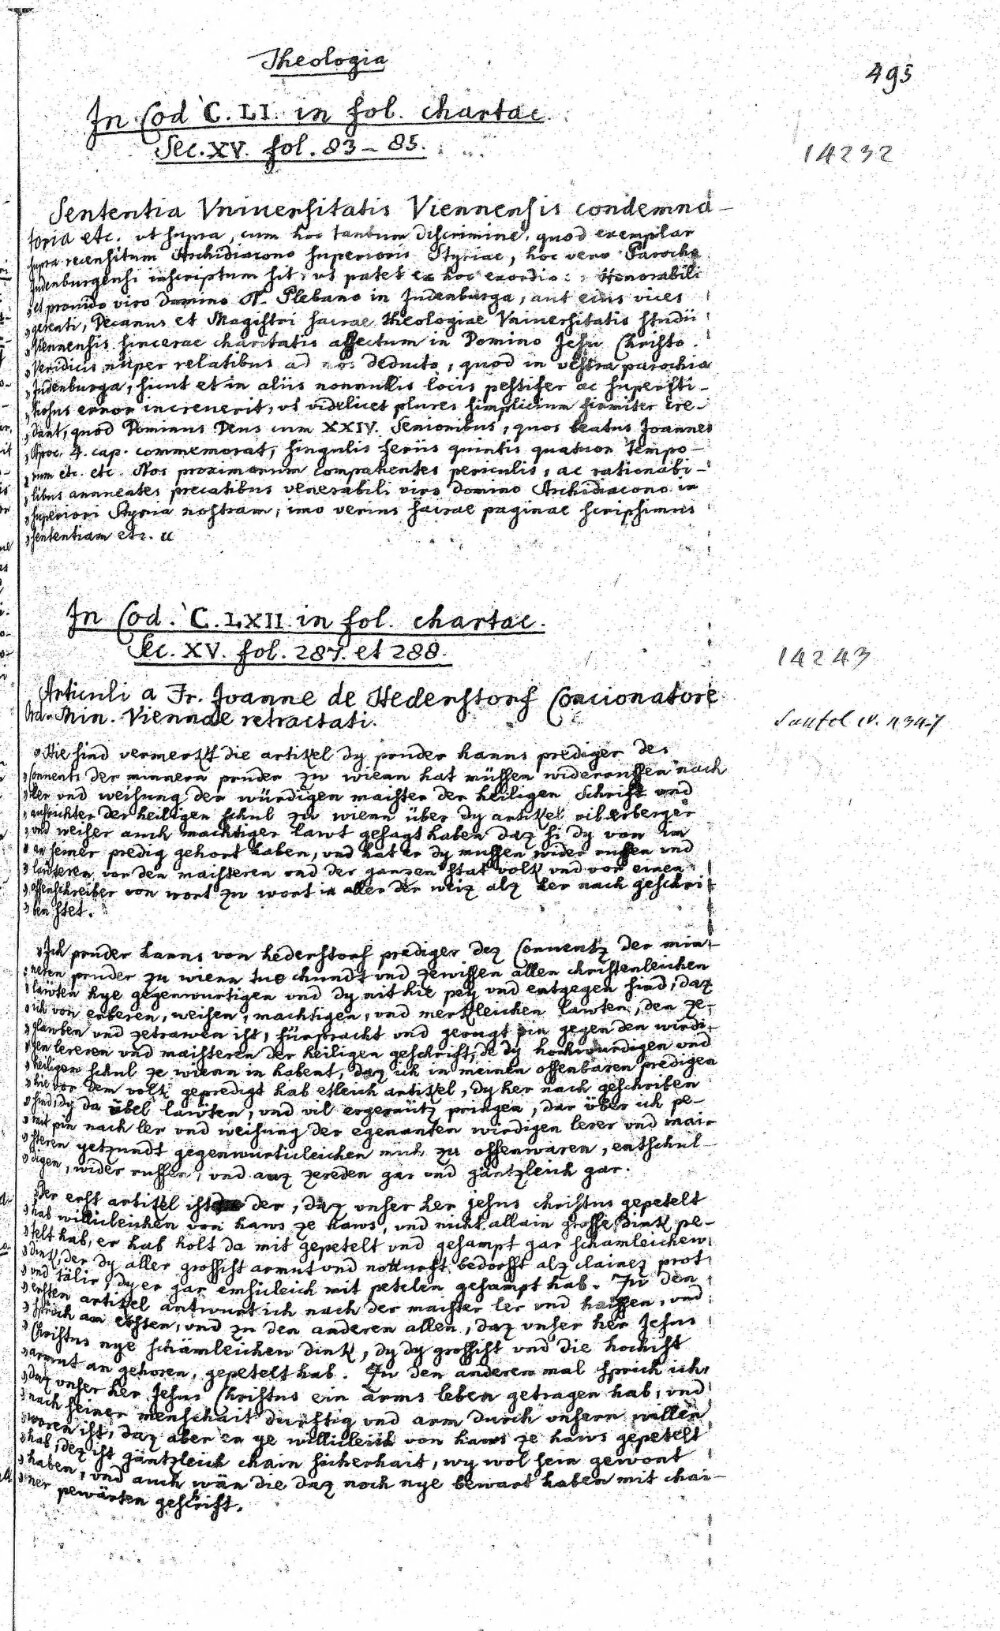 Theologia
495
In Cod C. LI. in fol. chartac.
Sec. XV. fol. 83 – 85.
14232
Sententia Vniuersitatis Viennensis condemna-
toria etc. vt supra, cum hoc tantum discrimine, quod exemplar
supra recensitum Archidiacono superioris Styriae, hoc vero Parocho
Judenburgensi inscriptum sit, vt patet ex hoc exordio: Honorabili
et prouido viro Domino N. Plebano in Judenburga, aut eius vices
gerenti, Decanus et Magistri sacrae Theologiae Vniuersitatis studii
Viennensis sincerae charitatis affectum in Domino Jesu Christo.
Veridicis nuper relatibus ad nos deducto, quod in vestra parochia
Judenburga, sicut et in aliis nonnullis locis pestifer ac supersti-
tiosus error increuerit, vt videlicet plures simplicium firmiter cre-
dant, quod Dominus Deus cum XXIV. Senioribus, quos beatus Joannes
Apoc. 4. cap. commemorat, singulis feriis quintis quatuor Tempo-
rum etc. etc. Nos proximorum compatientes periculis, ac rationabi-
libus annuentes precatibus venerabili viro Domino Archidiacono in
superiori Styria nostram, imo verius sacrae paginae scripsimus
sententiam etc. "
In Cod. C. LXII. in fol. chartac.
Sec. XV. fol. 287. et 288.
14243
Articuli a Fr. Joanne de Hederstorf Concionatore
Ord. Min. Viennae retractati.
Hie sind vermerkt die artikel dy pruder hanns prediger des
Conuents der minnern pruder zu wienn hat müssen widerruffen nach
ler vnd weisung der würdigen maister der heiligen Schrift vnd
aufrichter der heiligen schul zu wienn über dy artikel
vnd weiser auch machtiger lawt gesagt haben daz si dy von im
in seiner predig gehort haben, vnd hat er dy mussen wider ruffen vnd
läutteren vor den maisteren vnd der ganzen stat volk vnd vor einem
offenschreiber von wort zu wort in aller der weiz alz her nach geschri-
ben stet.
Ich pruder hanns von hederstorf prediger dez Conuentz der min-
neren pruder zu wienn tue chundt vnd zewissen allen christenleichen
läwten hye gegenwurtigen vnd dy nit hie pey vnd entgegen sind, daz
ich von erberen, weisen, machtigen, vnd merkleichen lawten, den ze-
glauben vnd zetrawen ist, fürpracht vnd gerugt pin gegen den wirdi-
gen lereren vnd maisteren der heiligen geschrift, de dy hochwurdigen vnd
heiligen schul ze wienn in habent, daz ich in meinen offenbaren predigen
hie vor dem volk gepredigt hab etleich artikel, dy her nach geschriben
sind, dy da übel lawten, vnd vil ergernütz pringen, dar über ich pe-
mit pin nach ler vnd weisung der egenanten wirdigen lerer vnd mai-
steren yetzundt gegenwurticleichen mich zu offenwaren, entschul-
digen, wider ruffen, vnd auz zereden gar vnd gäntzleich gar.
Der erst artikel ist der, daz vnser her jesus christus gepetelt
hab willicleichen von haws ze haws, vnd nicht allain grosse dink pe-
telt hab, er hab holt da mit gepetelt vnd gesampt gar schamleichew
dink, der dy aller grossist armut vnd notturft bedorfft alz claines prot
vnd tälir, dy er gar emsicleich mit petelen gesampt hab. Zu dem
ersten artikel antwurt ich nach der maister ler vnd haissen, vnd
sprich am ersten, vnd zu den anderen allen, daz vnser her Jesus
Christus nye schämleichen dink, dy dy grossist vnd die hochist
armut an gehoren, gepetelt hab. Zu den anderen mal sprich ich
daz vnser her Jesus Christus ein arms leben getragen hab, vnd
nach seiner menschait durftig vnd arm durch vnsern willen
woren ist, daz aber er ye willicleich von haws ze haws gepetelt
hab, dez ist gäntzleich chain sicherhait, wy wol sein gewont
haben, vnd auch wär die daz noch nye bewart haben mit chai-
ner pewärten geschrift.